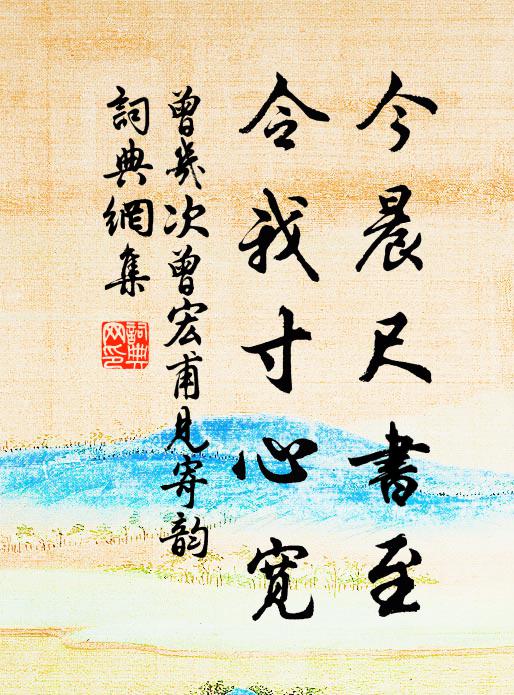 今晨尺書至
令我寸心寬
曾幾次曾宏甫見寄韵
詞典網集
詞典网印